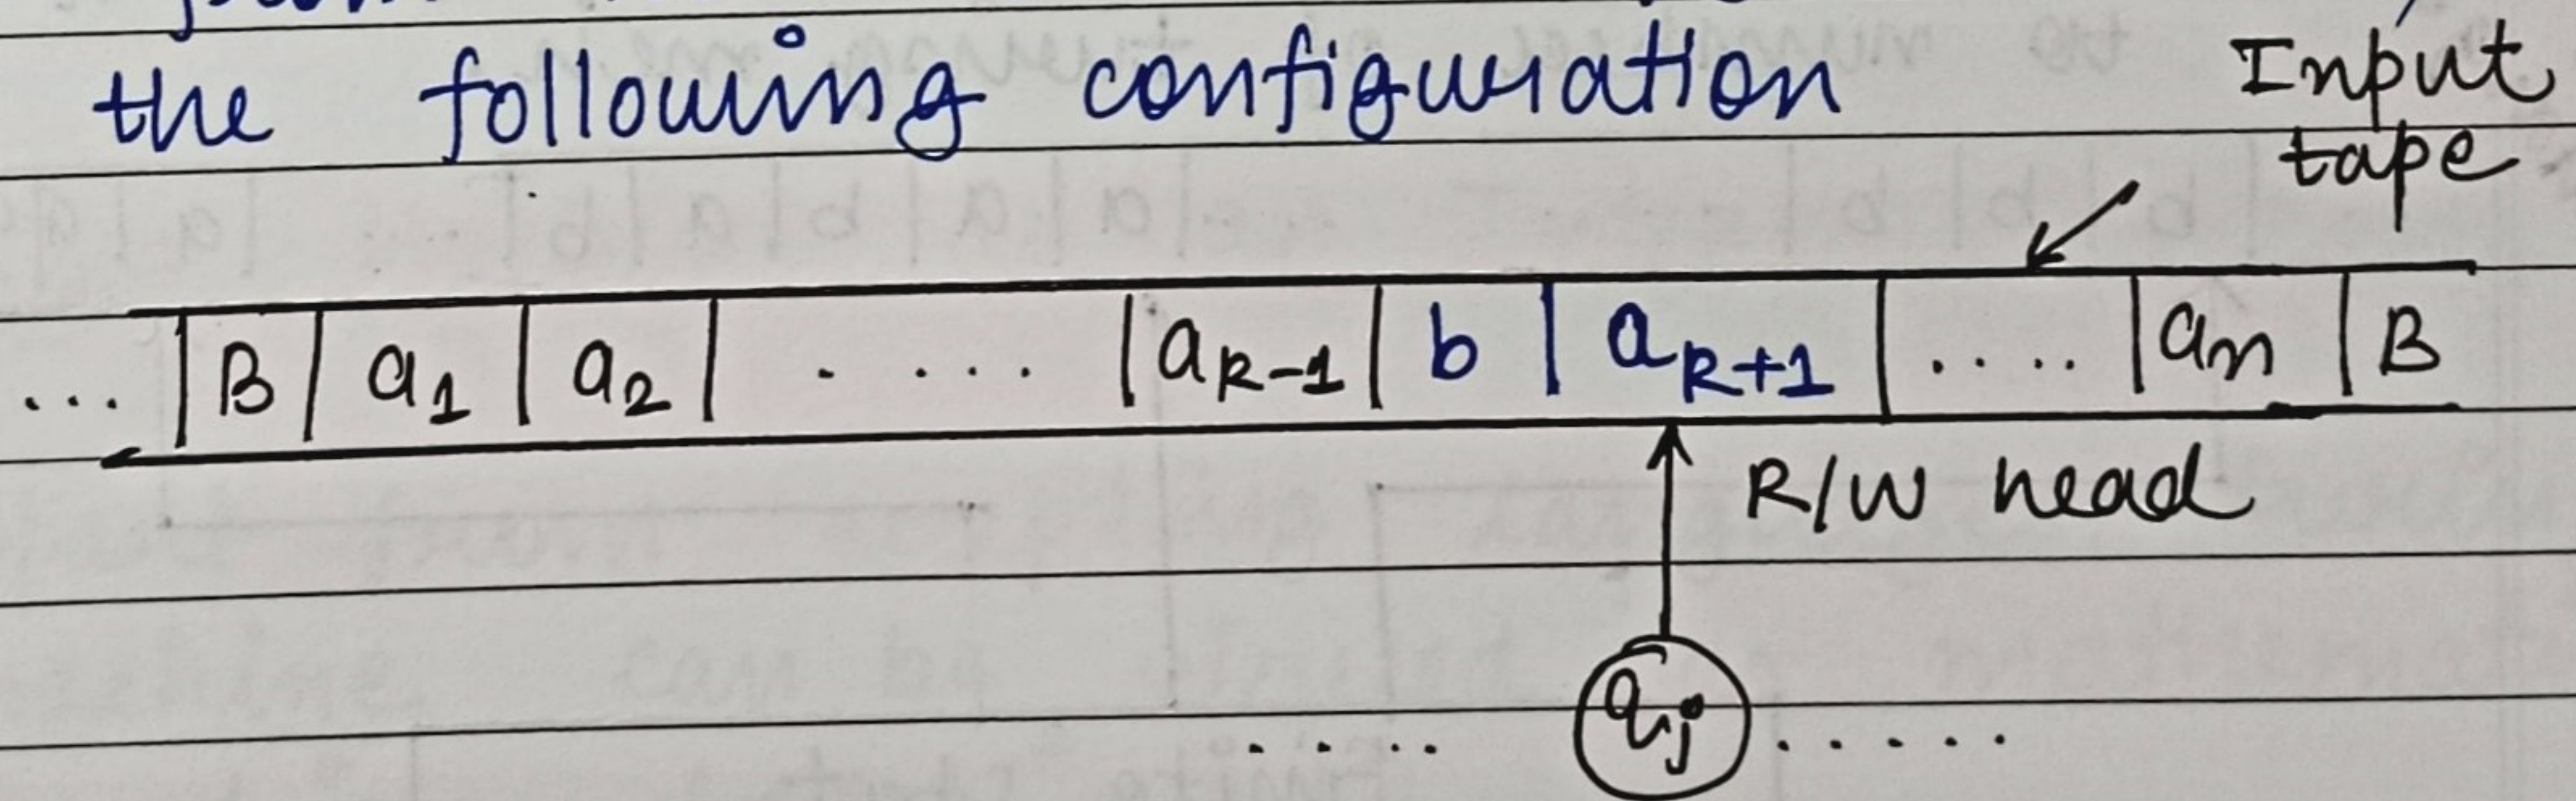 the following configuration
Input
tape
... | B | a1 | a2 | . .... | aR-1 | b | aR+1 | ..... | an | B
R/W head
..... qj .....